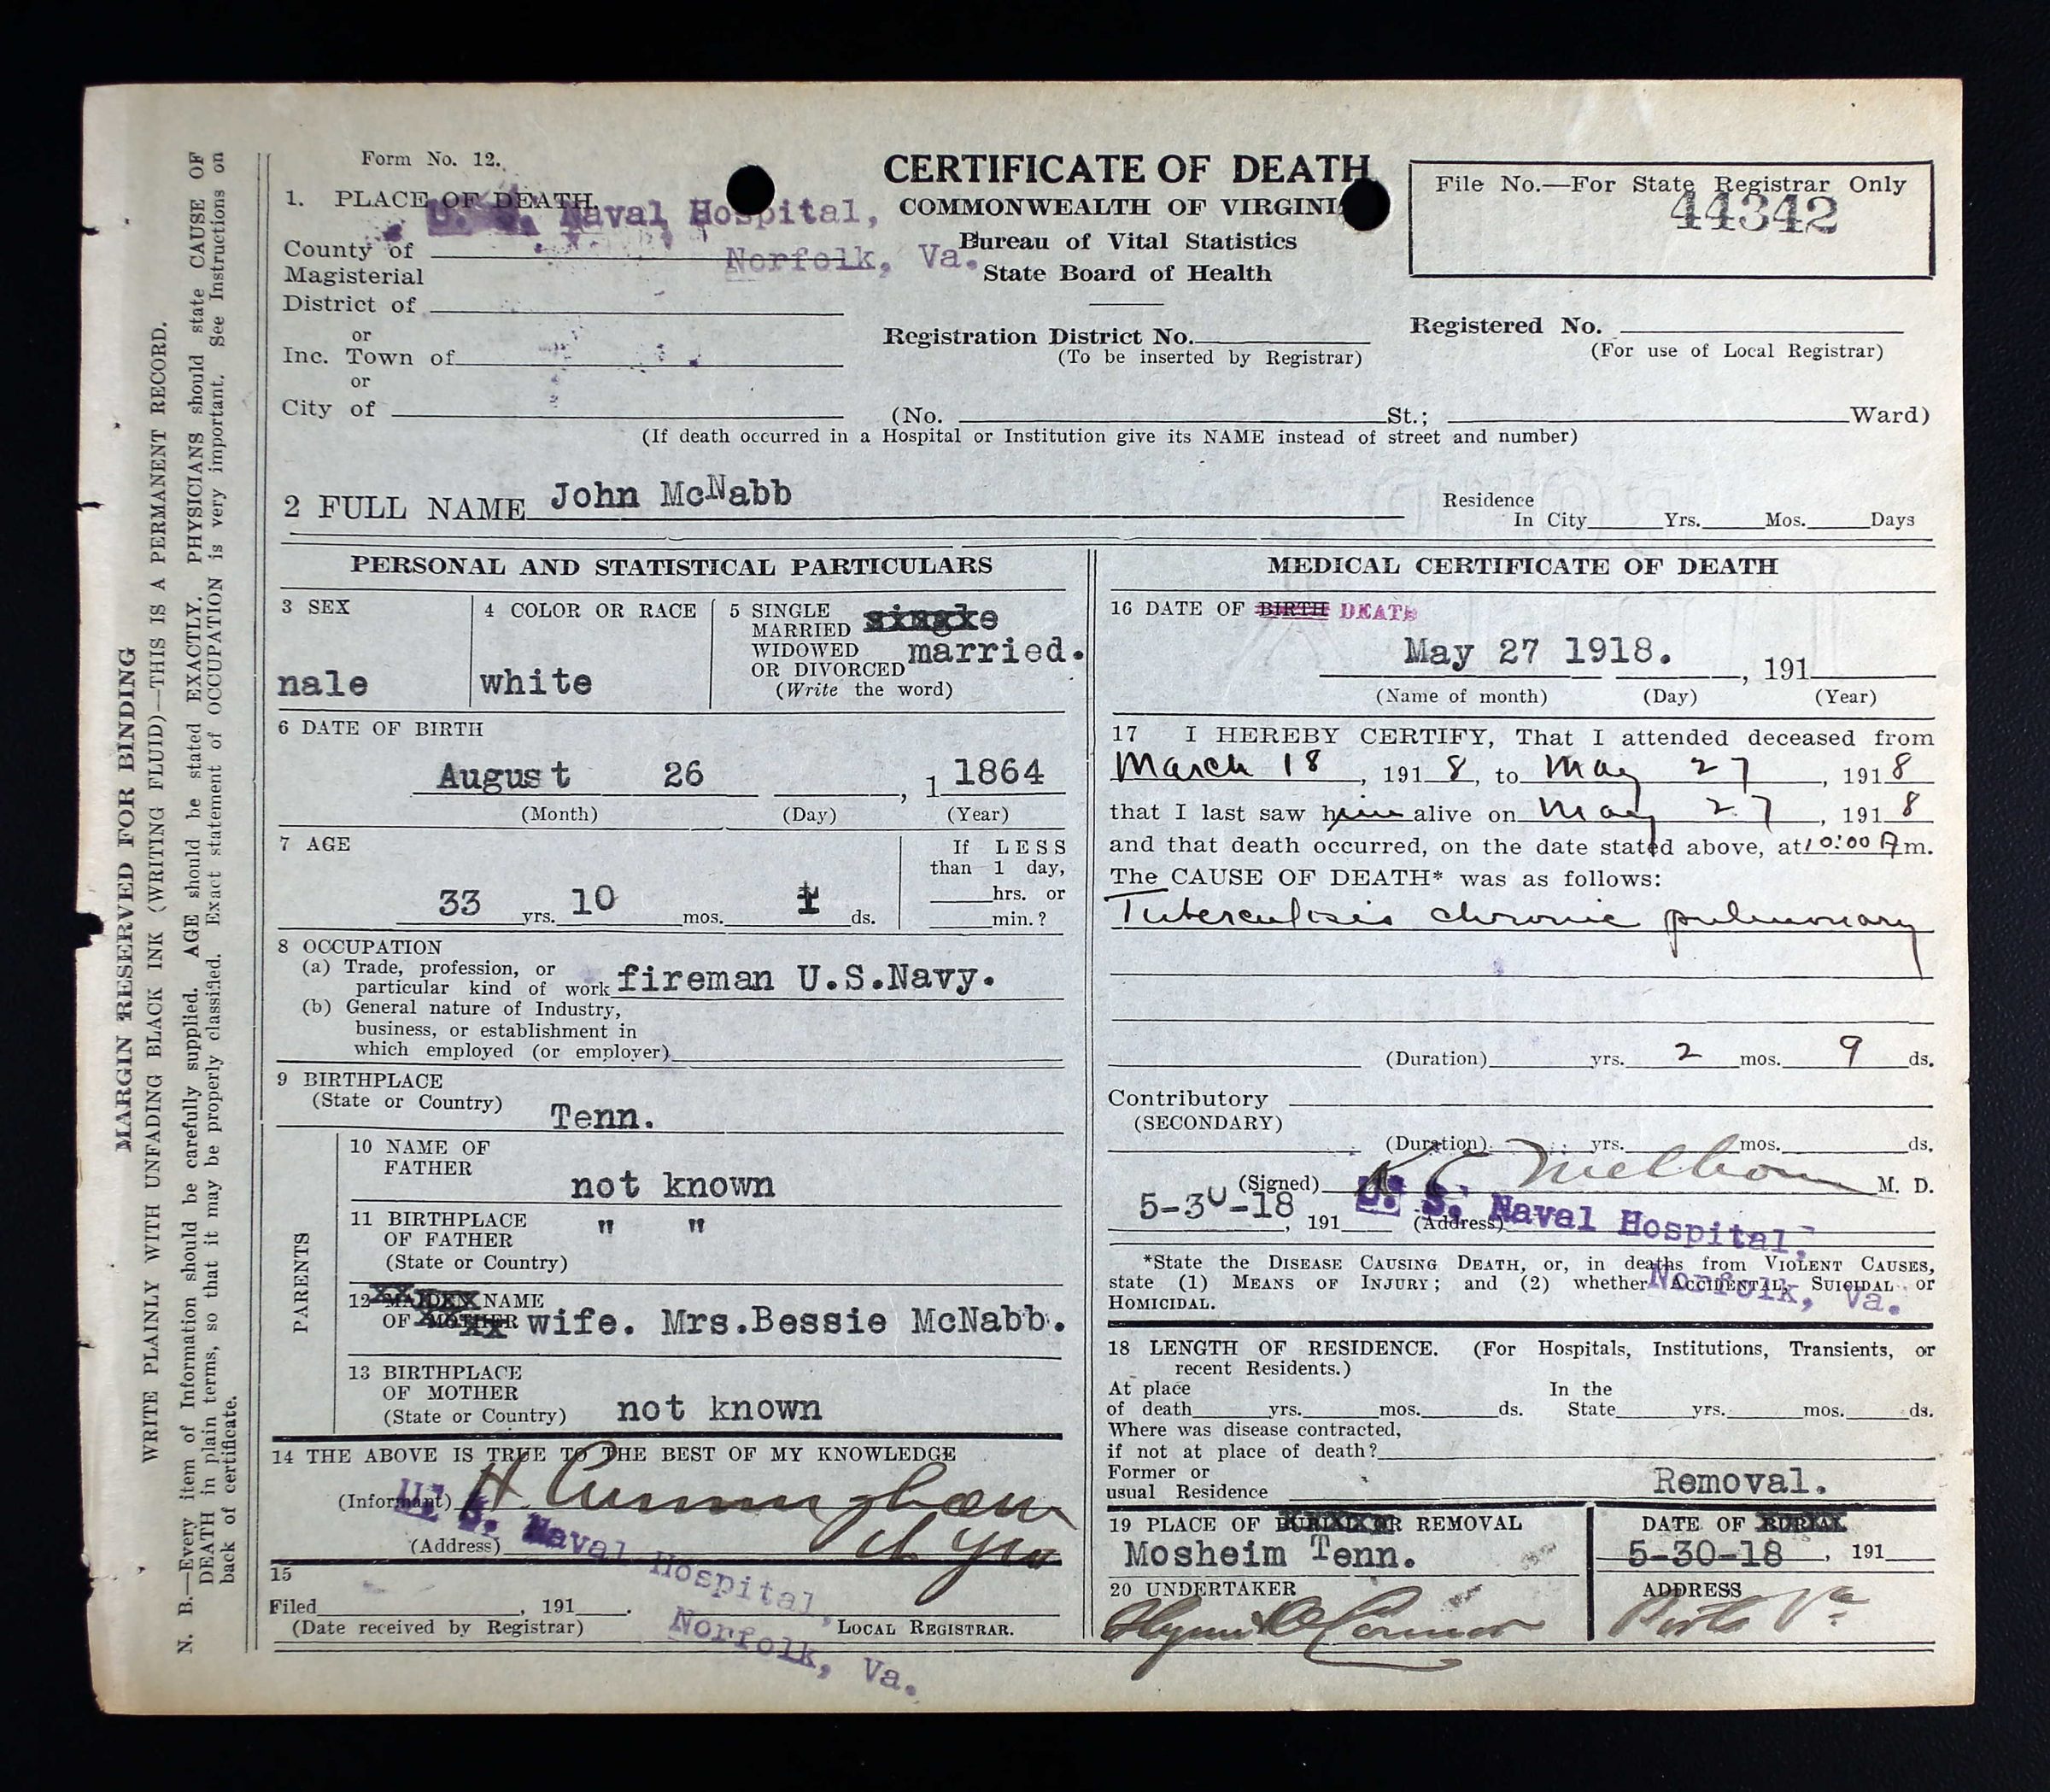 Form No. 12.
1. PLACE OF DEATH.
U. S. Naval Hospital,
Norfolk, Va.
County of
Magisterial
District of
or
Inc. Town of
or
City of
CERTIFICATE OF DEATH
COMMONWEALTH OF VIRGINI
Bureau of Vital Statistics
State Board of Health
Registration District No.
(To be inserted by Registrar)
File No.—For State Registrar Only
44342
Registered No.
(For use of Local Registrar)
(No. St.; Ward)
(If death occurred in a Hospital or Institution give its NAME instead of street and number)
2 FULL NAME John McNabb
Residence
In City Yrs. Mos. Days
PERSONAL AND STATISTICAL PARTICULARS
3 SEX
nale
4 COLOR OR RACE
white
5 SINGLE
MARRIED
WIDOWED
OR DIVORCED
(Write the word)
single
married.
6 DATE OF BIRTH
August 26 , 1 1864
(Month) (Day) (Year)
7 AGE
33 yrs. 10 mos. 1 ds.
If LESS
than 1 day,
hrs. or
min.?
8 OCCUPATION
(a) Trade, profession, or
particular kind of work fireman U.S.Navy.
(b) General nature of Industry,
business, or establishment in
which employed (or employer)
9 BIRTHPLACE
(State or Country)
Tenn.
PARENTS
10 NAME OF
FATHER
not known
11 BIRTHPLACE
OF FATHER
(State or Country)
" "
12 MAIDEN NAME
OF MOTHER wife. Mrs.Bessie McNabb.
13 BIRTHPLACE
OF MOTHER
(State or Country) not known
14 THE ABOVE IS TRUE TO THE BEST OF MY KNOWLEDGE
(Informant) H. Cunningham
(Address)
U. S. Naval Hospital,
Norfolk, Va.
15
Filed , 191 .
(Date received by Registrar) LOCAL REGISTRAR.
MEDICAL CERTIFICATE OF DEATH
16 DATE OF BIRTH DEATH
May 27 1918. , 191
(Name of month) (Day) (Year)
17 I HEREBY CERTIFY, That I attended deceased from
March 18 , 191 8, to May 27 , 191 8
that I last saw him alive on May 27 , 191 8
and that death occurred, on the date stated above, at 10:00 A m.
The CAUSE OF DEATH* was as follows:
Tuberculosis chronic pulmonary
(Duration) yrs. 2 mos. 9 ds.
Contributory
(SECONDARY)
(Duration) yrs. mos. ds.
(Signed) M. D.
5-30-18 , 191 (Address)
U. S. Naval Hospital,
Norfolk, Va.
*State the DISEASE CAUSING DEATH, or, in deaths from VIOLENT CAUSES,
state (1) MEANS OF INJURY; and (2) whether ACCIDENTAL, SUICIDAL or
HOMICIDAL.
18 LENGTH OF RESIDENCE. (For Hospitals, Institutions, Transients, or
recent Residents.)
At place In the
of death yrs. mos. ds. State yrs. mos. ds.
Where was disease contracted,
if not at place of death?
Former or
usual Residence
Removal.
19 PLACE OF BURIAL OR REMOVAL
Mosheim Tenn.
DATE OF BURIAL
5-30-18 , 191
20 UNDERTAKER
ADDRESS
MARGIN RESERVED FOR BINDING
WRITE PLAINLY WITH UNFADING BLACK INK (WRITING FLUID)—THIS IS A PERMANENT RECORD.
N. B.—Every item of Information should be carefully supplied. AGE should be stated EXACTLY. PHYSICIANS should state CAUSE OF
DEATH in plain terms, so that it may be properly classified. Exact statement of OCCUPATION is very important. See Instructions on
back of certificate.